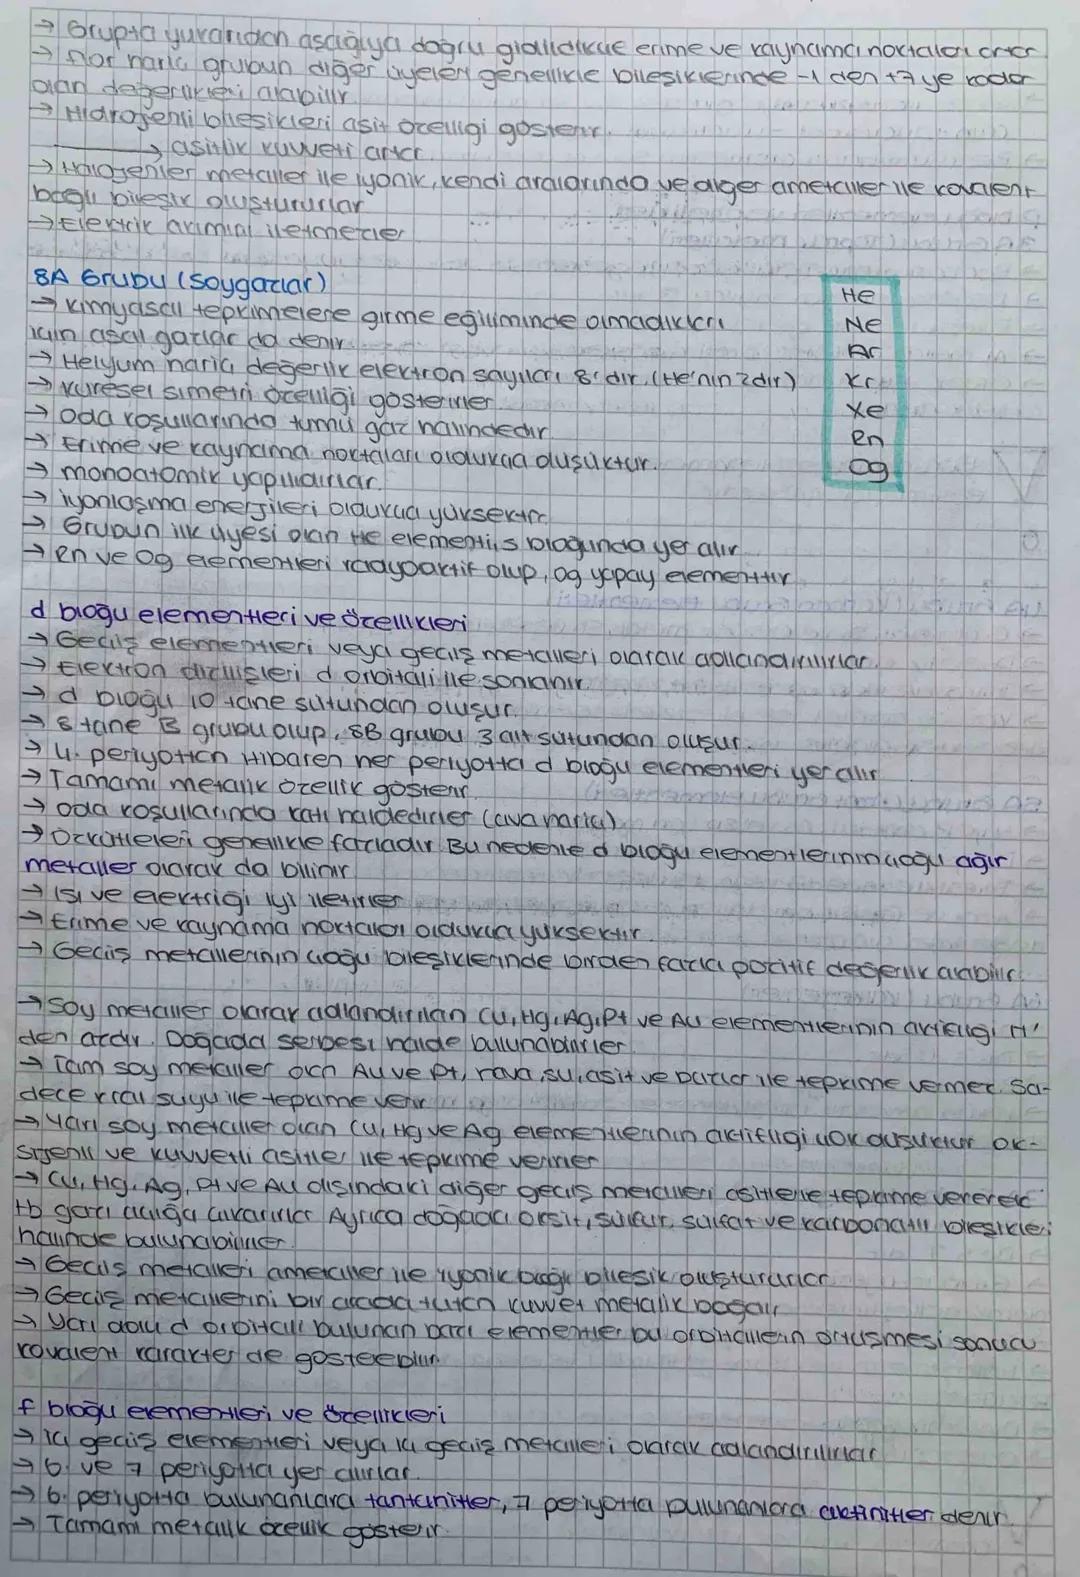 → Grupta yukarıdan aşağıya doğru gidildikçe erime ve kaynama noktaları artar
→ Flor hariç grubun diğer üyeleri genellikle bileşiklerinde -1 den +7 ye kadar
olan değerlikleri alabilir
→ Hidrojenli bileşikleri asit özelliği gösterir.
→ asitlik kuvveti artar
→ Halojenler metaller ile iyonik, kendi aralarında ve diğer ametaller ile kovalent
bağlı bileşik oluştururlar
→ Elektrik akımını iletmezler
8A Grubu (Soygazlar)
→ Kimyasal tepkimelere girme eğiliminde olmadıkları
için asal gazlar da denir.
→ Helyum hariç değerlik elektron sayıları 8'dir. (He'nin 2dir)
→ Küresel simetri özelliği gösterirler.
→ Oda koşullarında tümü gaz halindedir.
→ Erime ve kaynama noktaları oldukça düşüktür.
→ monoatomik yapılıdırlar.
→ İyonlaşma enerjileri oldukça yüksektir.
→ Grubun ilk üyesi olan He elementi, s bloğunda yer alır.
→ Rn ve Og elementleri radyoaktif olup, Og yapay elementtir
He
Ne
Ar
Kr
Xe
Rn
Og
d bloğu elementleri ve özellikleri
→ Geçiş elementleri veya geçiş metalleri olarak adlandırılırlar.
→ Elektron dizilişleri d orbitali ile sonlanır.
→ d bloğu 10 tane sütundan oluşur.
→ 8 tane B grubu olup, 8B grubu 3 alt sütundan oluşur.
→ 4. periyottan itibaren her periyotta d bloğu elementleri yer alır.
→ Tamamı metalik özellik gösterir.
→ Oda koşullarında katı haldedirler (cıva hariç)
→ Özkütleleri genellikle fazladır. Bu nedenle d bloğu elementlerinin çoğu ağır
metaller olarak da bilinir
→ Isı ve elektriği iyi iletirler
→ Erime ve kaynama noktaları oldukça yüksektir.
→ Geçiş metallerinin çoğu bileşiklerinde birden fazla pozitif değerlik alabilir.
→ Soy metaller olarak adlandırılan Cu, Hg, Ag, Pt ve Au elementlerinin aktifliği H'
den azdır. Doğada serbest halde bulunabilirler
→ Tam soy metaller olan Au ve Pt, hava, su, asit ve bazlar ile tepkime vermez. Sa-
dece kral suyu ile tepkime verir
→ Yarı soy metaller olan Cu, Hg ve Ag elementlerinin aktifliği çok düşüktür ok-
sijenli ve kuvvetli asitler ile tepkime verirler
→ Cu, Hg, Ag, Pt ve Au dışındaki diğer geçiş metalleri asitlerle tepkime vererek
gazı açığa çıkarırlar Ayrıca doğada oksit, sülfür, sülfat ve karbonatlı bileşikleri
halinde bulunabilirler.
→ Geçiş metalleri ametaller ile iyonik bağlı bileşik oluştururlar
→ Geçiş metallerini bir arada tutan kuvvet metalik bağdır
→ Yarı dolu d orbitali bulunan bazı elementler bu orbitallerin örtüşmesi sonucu
kovalent karakter de gösterebilir.
f bloğu elementleri ve özellikleri
→ İç geçiş elementleri veya iç geçiş metalleri olarak adlandırılırlar
→ 6. ve 7 periyotta yer alırlar.
→ 6. periyotta bulunanlara lantanitler, 7 periyotta bulunanlara aktinitler denir.
→ Tamamı metalik özellik gösterir.